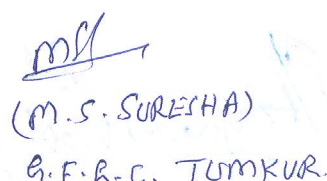 (M.S. SURESHA)
G.F.G.C. TUMKUR.